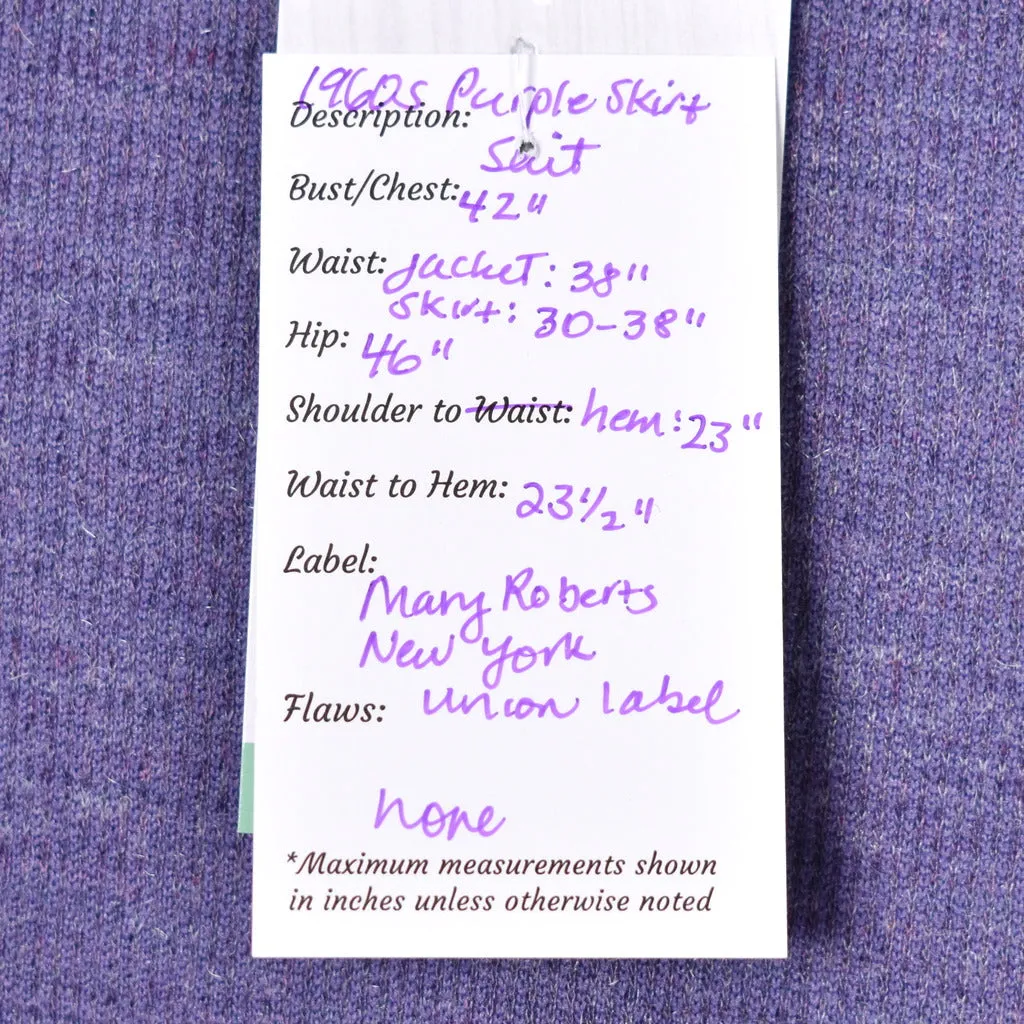 1960s Purple Skirt
Description:
Suit
Bust/Chest: 42"
Waist: Jacket: 38"
Skirt: 30-38"
Hip: 46"
Shoulder to Waist: hem: 23"
Waist to Hem: 23 1/2"
Label:
Mary Roberts
New York
Flaws: Union label
none
*Maximum measurements shown
in inches unless otherwise noted